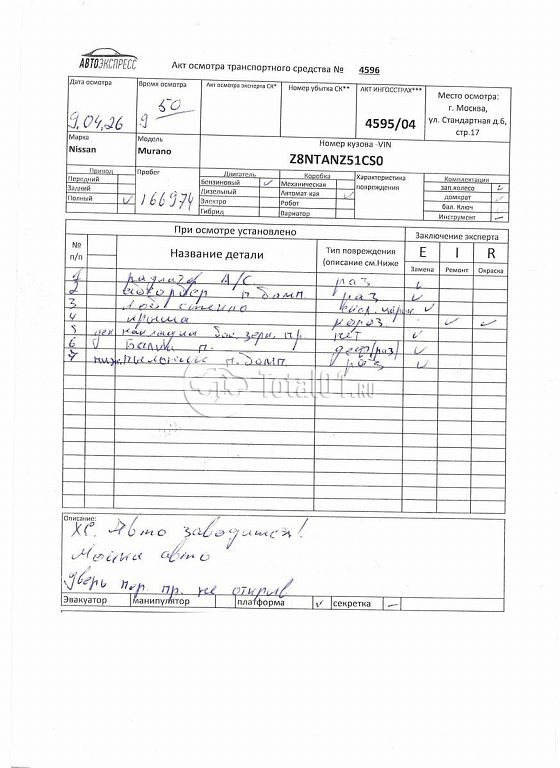 АВТОЭКСПРЕСС
Акт осмотра транспортного средства № 4596
Дата осмотра
9.04.26
Время осмотра
9 50
Акт осмотра эксперта СК*
Номер убытка СК**
АКТ ИНГОССТРАХ***
4595/04
Место осмотра:
г. Москва,
ул. Стандартная д.6,
стр.17
Марка
Nissan
Модель
Murano
Номер кузова -VIN
Z8NTANZ51CS0
Привод
Передний
Задний
Полный
Пробег
166974
Двигатель
Бензиновый
Дизельный
Электро
Гибрид
Коробка
Механическая
Автомат-кая
Робот
Вариатор
Характеристика
повреждения
Комплектация
зап.колесо
домкрат
бал. Ключ
Инструмент
При осмотре установлено
Заключение эксперта
№
п/п
Название детали
Тип повреждения
(описание см.Ниже
E I R
Замена Ремонт Окраска
1 A/C раз
2 п бамп. раз
3 Лоб стекло
4 крыша
5 накладка бок. зерк. пр. нет
6 п. деф(раз)
7 пыльник п. бамп. раз
Total01.ru
Описание:
ХС. Авто заводится!
Мойка авто
дверь пер. пр. не открыв
Эвакуатор манипулятор платформа секретка